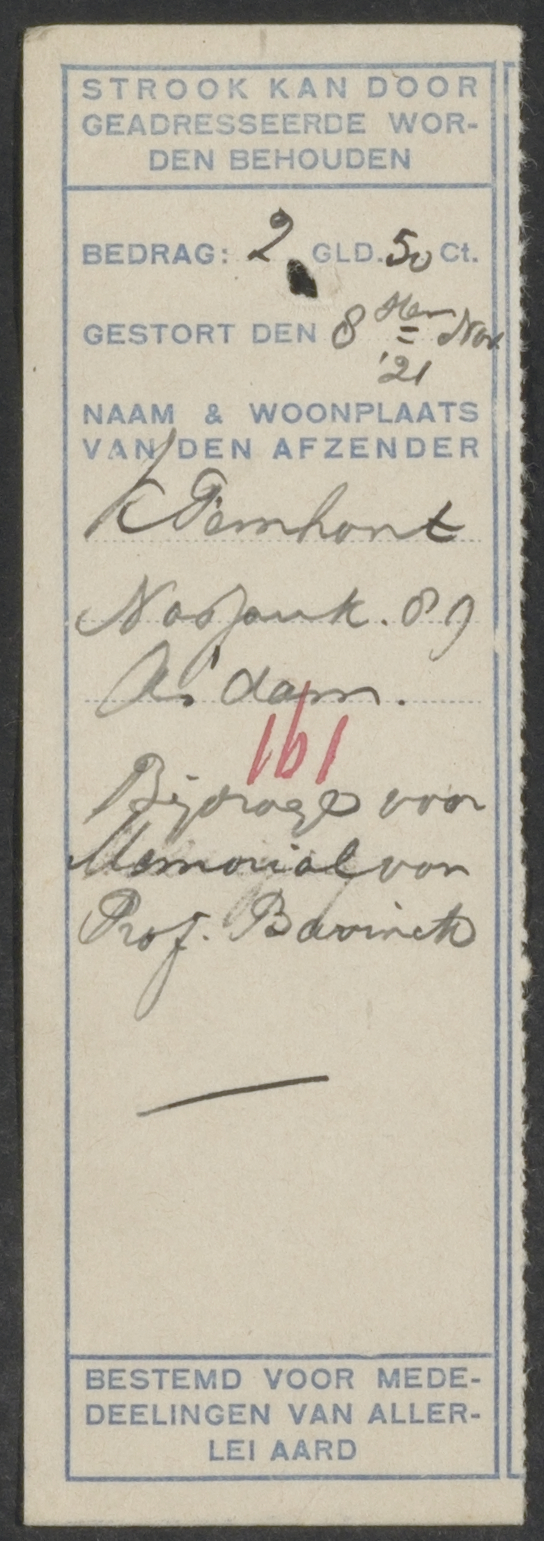 STROOK KAN DOOR
GEADRESSEERDE WOR-
DEN BEHOUDEN
BEDRAG: 2 GLD. 50 Ct.
GESTORT DEN 8 sten Nov.
'21
NAAM & WOONPLAATS
VAN DEN AFZENDER
K
89
A'dam.
161
Bijdrage voor
Memorial van
Prof. Bavinck
BESTEMD VOOR MEDE-
DEELINGEN VAN ALLER-
LEI AARD